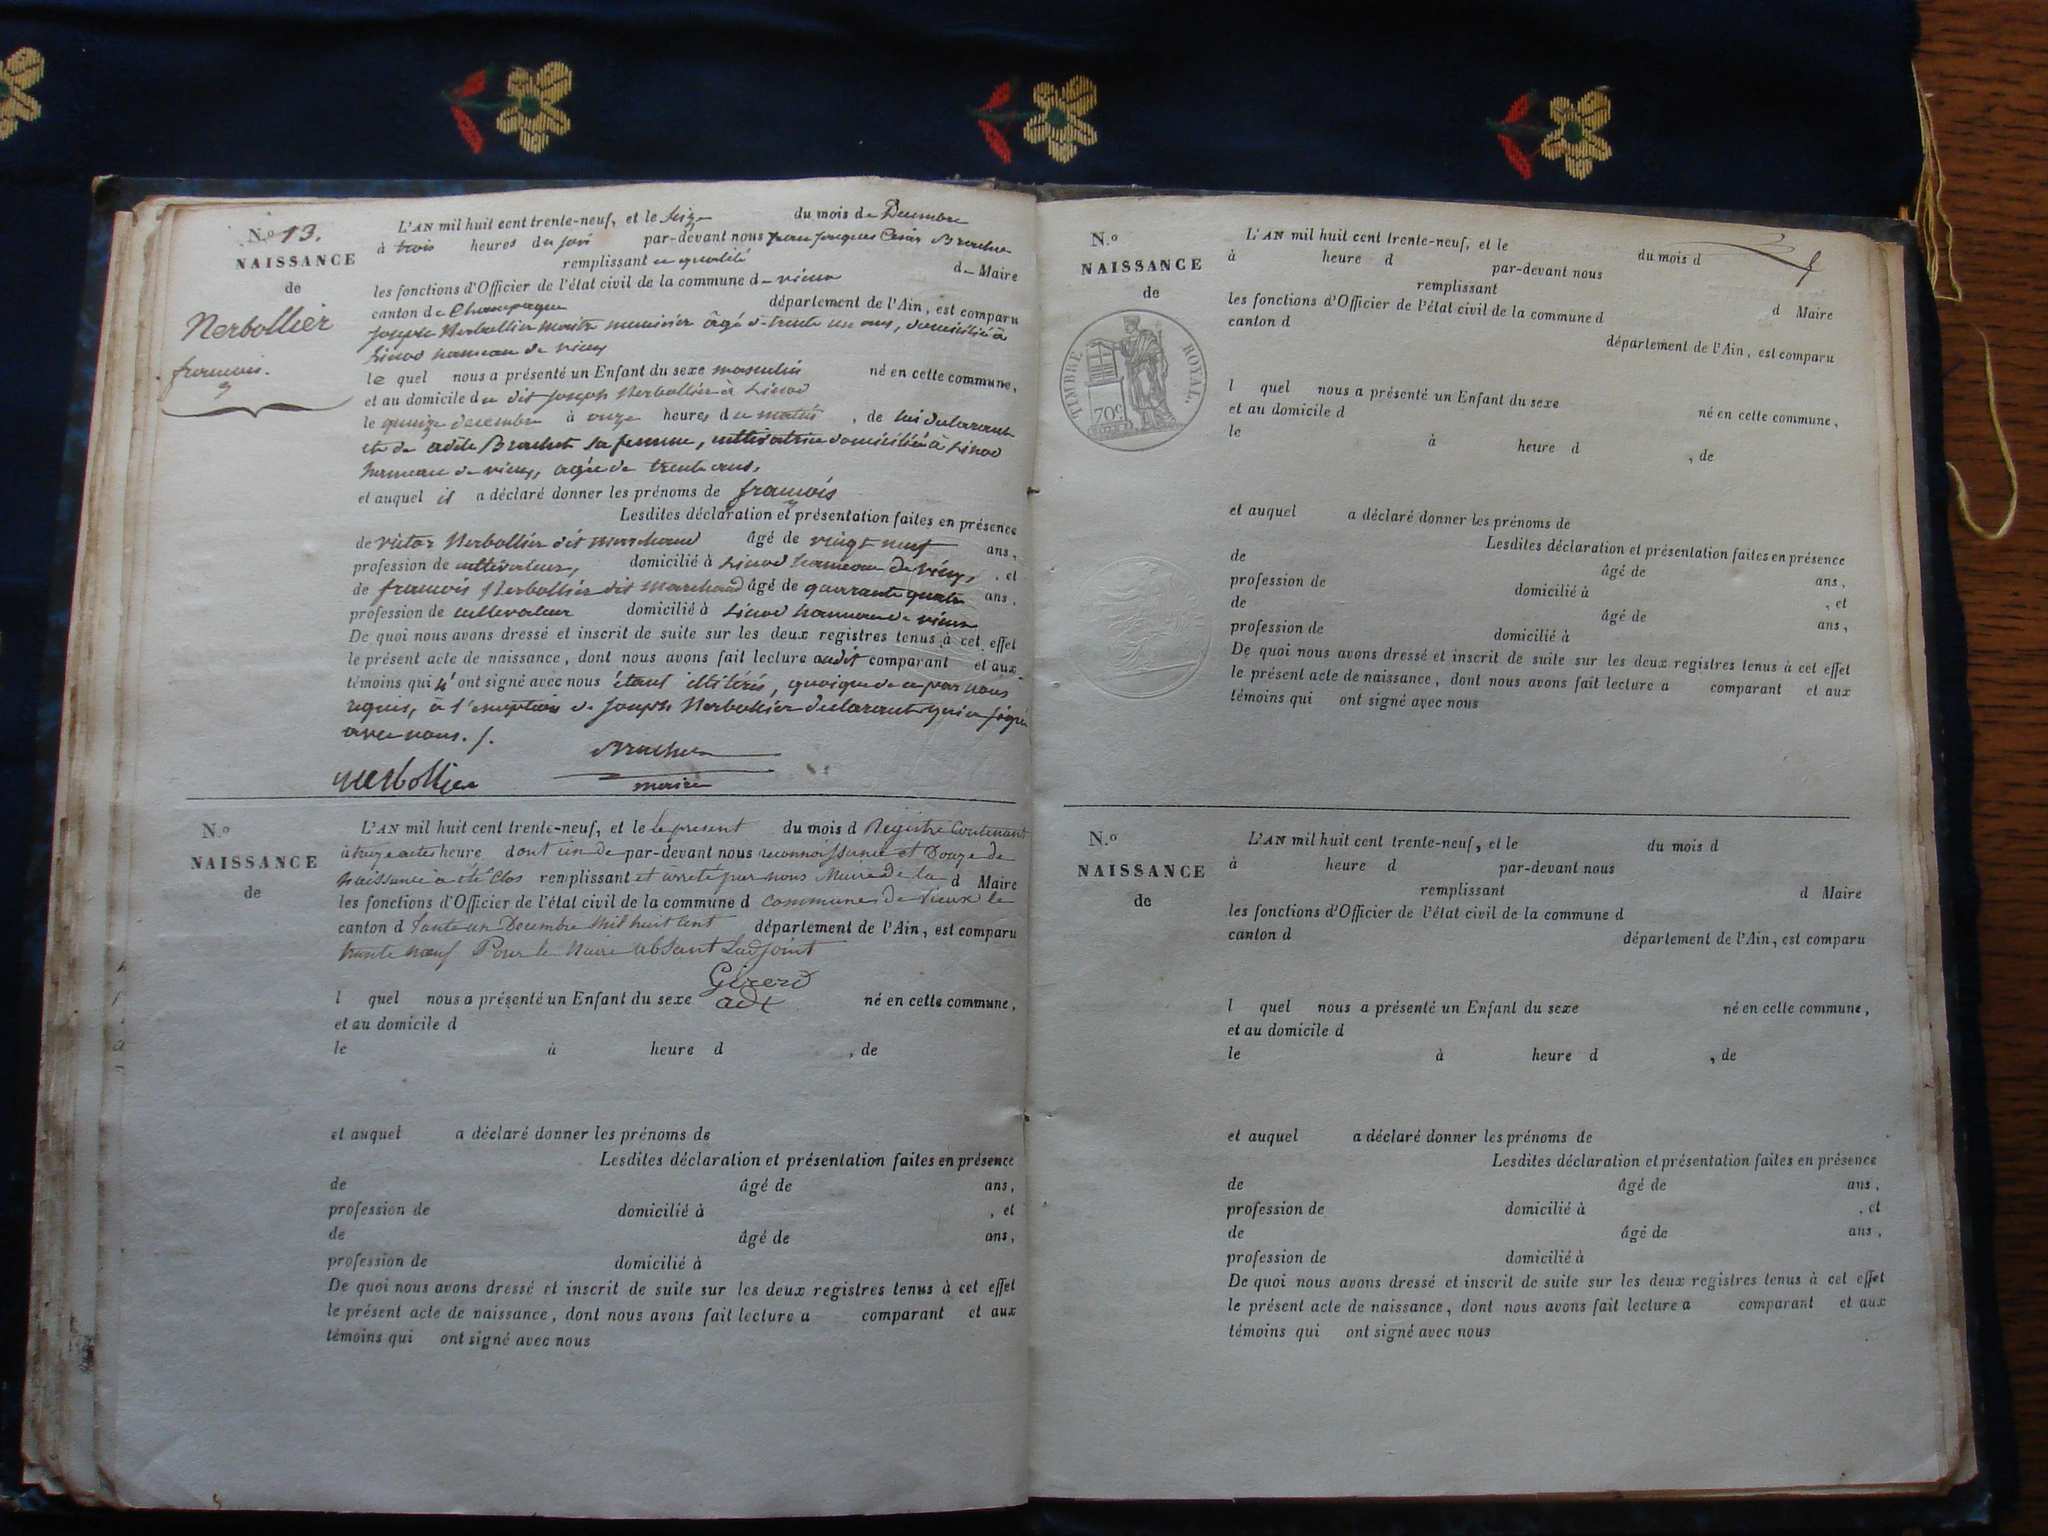 N.º 13.
NAISSANCE
de
Nerbollier
françois.
L'AN mil huit cent trente-neuf, et le seize du mois de Decembre
à trois heures du soir par-devant nous jean jacques César Brachet
remplissant en qualité de Maire
les fonctions d'Officier de l'état civil de la commune de vieux
canton de Champagne département de l'Ain, est comparu
joseph Nerbollier maitre menuisier âgé de trente un ans, domicilié à
hameau de vieux
le quel nous a présenté un Enfant du sexe masculin né en cette commune,
et au domicile du dit joseph Nerbollier à
le quinze decembre à onze heures du matin, de lui declarant
et de adèle Brachet sa femme, cultivatrice domiciliée à
hameau de vieux, agée de trente ans,
et auquel il a déclaré donner les prénoms de françois
Lesdites déclaration et présentation faites en présence
de victor Nerbollier dit marchand âgé de vingt neuf ans,
profession de cultivateur, domicilié à hameau de vieux, et
de françois Nerbollier dit marchand âgé de quarante quatre ans,
profession de cultivateur domicilié à hameau de vieux
De quoi nous avons dressé et inscrit de suite sur les deux registres tenus à cet effet
le présent acte de naissance, dont nous avons fait lecture audit comparant et aux
témoins qui n'ont signé avec nous étant illitérés, quoique de ce par nous
requis, à l'exception de joseph Nerbollier declarant qui a signé
avec nous.
Nerbollier
Brachet
maire
N.º
NAISSANCE
de
L'AN mil huit cent trente-neuf, et le le present du mois d Registre Contenant
à treize actes heure dont un de par-devant nous reconnoissance et Douze de
naissance a été Clos remplissant et arreté par nous Maire de la d Maire
les fonctions d'Officier de l'état civil de la commune d commune de Vieux le
canton d Trente un Decembre Mil huit Cent département de l'Ain, est comparu
trente neuf Pour le Maire absant Ladjoint
Girerd
adt
l quel nous a présenté un Enfant du sexe né en cette commune,
et au domicile d
le à heure d , de
et auquel a déclaré donner les prénoms de
Lesdites déclaration et présentation faites en présence
de âgé de ans,
profession de domicilié à , et
de âgé de ans,
profession de domicilié à
De quoi nous avons dressé et inscrit de suite sur les deux registres tenus à cet effet
le présent acte de naissance, dont nous avons fait lecture a comparant et aux
témoins qui ont signé avec nous
N.º
NAISSANCE
de
TIMBRE ROYAL
70c
L'AN mil huit cent trente-neuf, et le du mois d
à heure d par-devant nous
remplissant d Maire
les fonctions d'Officier de l'état civil de la commune d
canton d département de l'Ain, est comparu
l quel nous a présenté un Enfant du sexe né en cette commune,
et au domicile d
le à heure d , de
et auquel a déclaré donner les prénoms de
Lesdites déclaration et présentation faites en présence
de âgé de ans,
profession de domicilié à , et
de âgé de ans,
profession de domicilié à
De quoi nous avons dressé et inscrit de suite sur les deux registres tenus à cet effet
le présent acte de naissance, dont nous avons fait lecture a comparant et aux
témoins qui ont signé avec nous
N.º
NAISSANCE
de
L'AN mil huit cent trente-neuf, et le du mois d
à heure d par-devant nous
remplissant d Maire
les fonctions d'Officier de l'état civil de la commune d
canton d département de l'Ain, est comparu
l quel nous a présenté un Enfant du sexe né en cette commune,
et au domicile d
le à heure d , de
et auquel a déclaré donner les prénoms de
Lesdites déclaration et présentation faites en présence
de âgé de ans,
profession de domicilié à , et
de âgé de ans,
profession de domicilié à
De quoi nous avons dressé et inscrit de suite sur les deux registres tenus à cet effet
le présent acte de naissance, dont nous avons fait lecture a comparant et aux
témoins qui ont signé avec nous